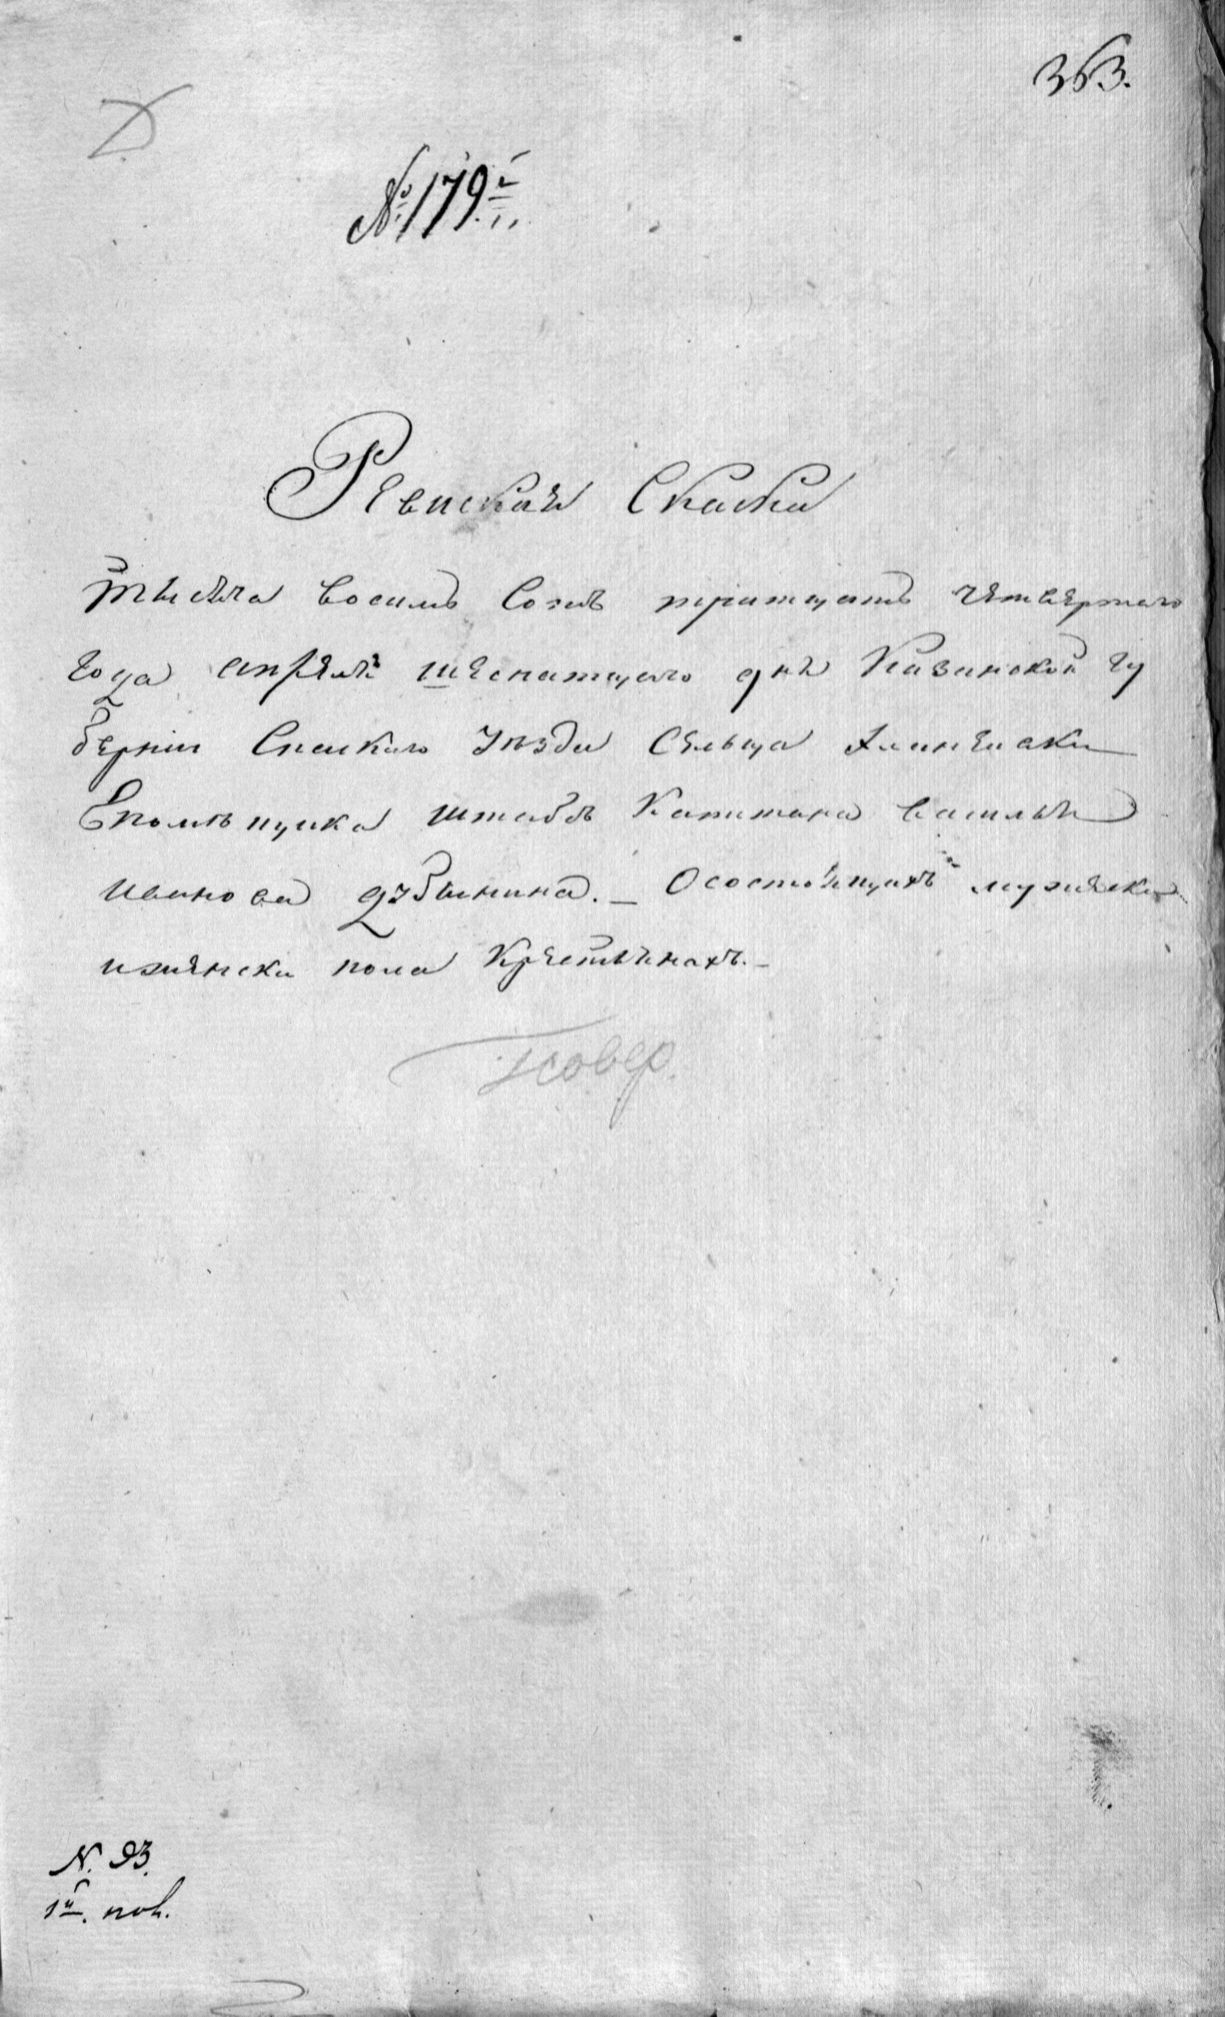 363.
№ 179.й
Ревиская Скаска
тысяча восимъ сотъ тритцать четвертаго
года апреля шеснатцаго дня Казанской гу
берніи Спаскаго Уѣзда Сельца
Г помѣщика штабсъ Капитана василья
иванова дубынина. — Осостоящихъ мужеска
иженска пола Крестьянахъ. —
повер.
N. 93.
1й. пол.